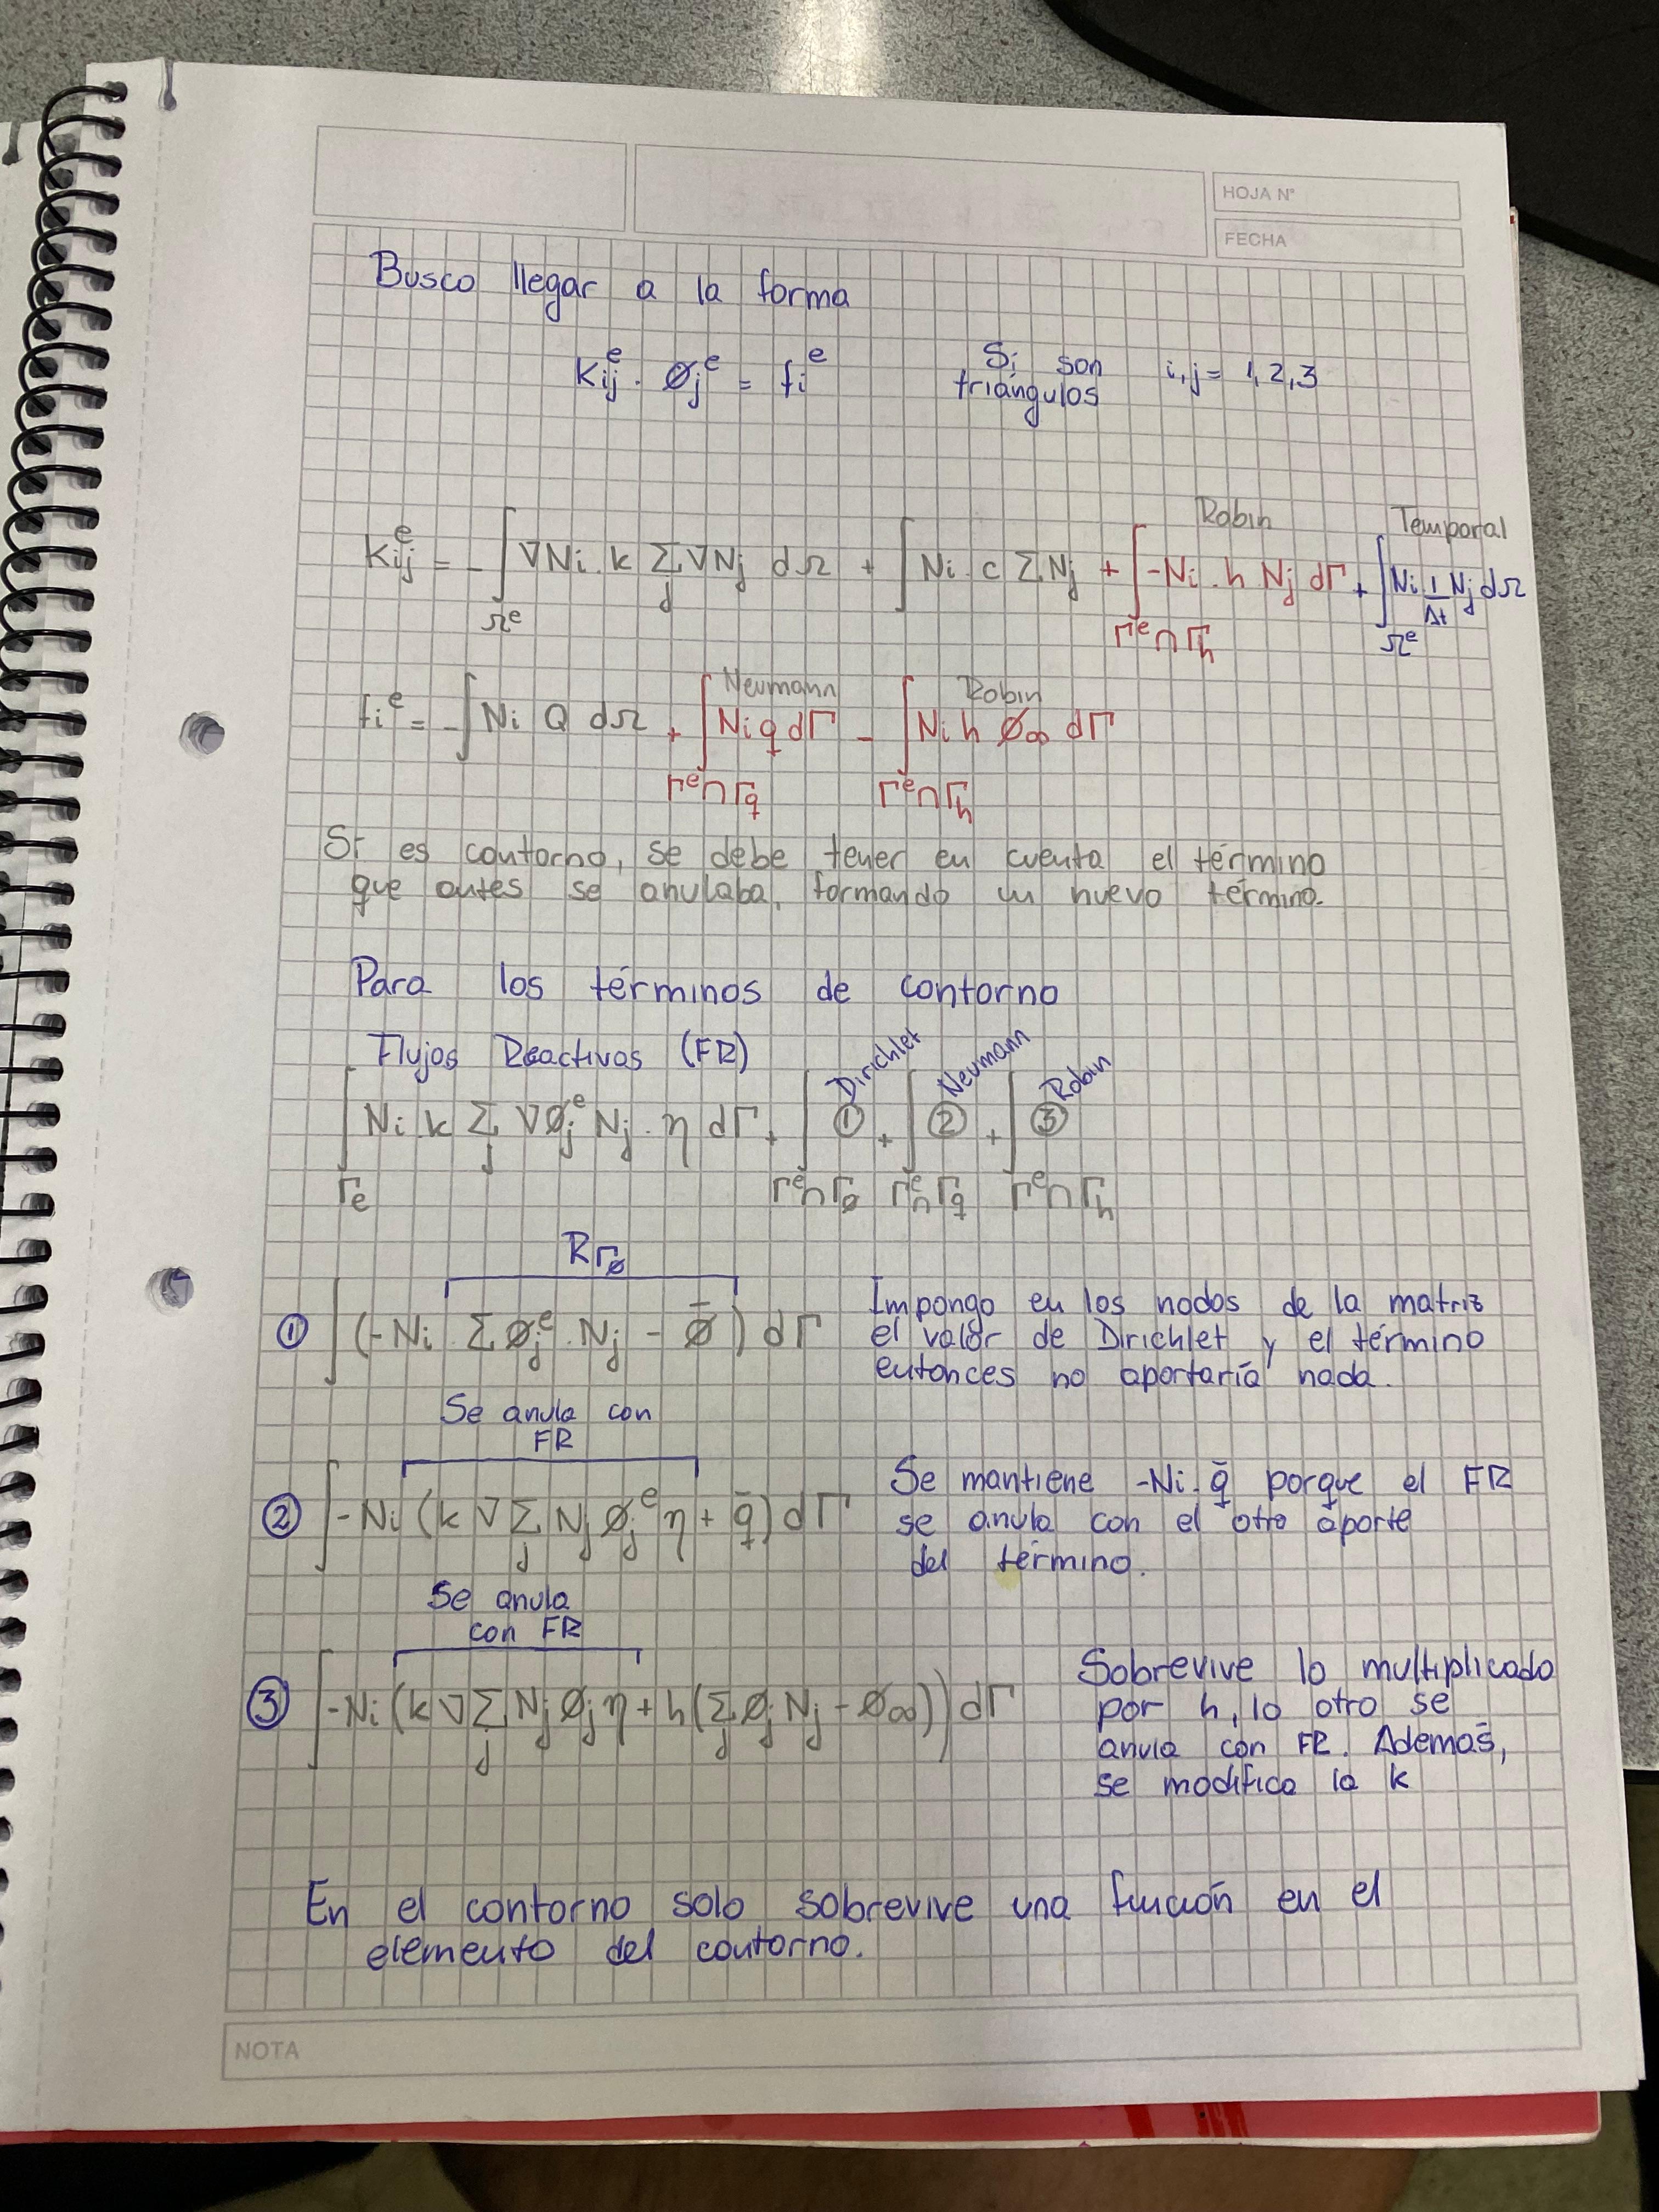 HOJA N°
FECHA
Busco llegar a la forma
Kij^e · Øj^e = fi^e    Si son triángulos    i,j = 1,2,3
Robin    Temporal
Kij^e = -∫_Ω^e ∇Ni · k Σ_j ∇Nj dΩ + ∫ Ni c Σ Nj + ∫_Γ^e∩Γh -Ni · h Nj dΓ + ∫_Ω^e Ni 1/Δt Nj dΩ
Neumann    Robin
fi^e = -∫ Ni Q dΩ + ∫_Γ^e∩Γq Ni q dΓ - ∫_Γ^e∩Γh Ni h Ø∞ dΓ
Si es contorno, se debe tener en cuenta el término
que antes se anulaba, formando un nuevo término.
Para los términos de contorno
Flujos Reactivos (FR)
Dirichlet    Neumann    Robin
∫_Γe Ni k Σ_j ∇Øj^e Nj · η dΓ + ∫_Γ^e∩ΓØ ① + ∫_Γ^e∩Γq ② + ∫_Γ^e∩Γh ③
R_ΓØ
① ∫ (-Ni · Σ Øj^e · Nj - Ø̄) dΓ
Impongo en los nodos de la matriz
el valor de Dirichlet y el término
entonces no aportaría nada.
Se anula con
FR
② ∫ -Ni (k ∇ Σ_j Nj Øj^e η + q̄) dΓ
Se mantiene -Ni · q̄ porque el FR
se anula con el otro aporte
del término.
Se anula
con FR
③ ∫ -Ni (k ∇ Σ_j Nj Øj η + h (Σ_j Øj Nj - Ø∞)) dΓ
Sobrevive lo multiplicado
por h, lo otro se
anula con FR. Además,
se modifica la k
En el contorno solo sobrevive una función en el
elemento del contorno.
NOTA